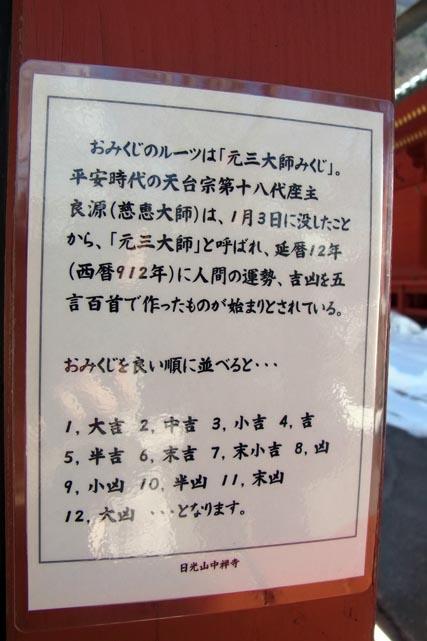 おみくじのルーツは「元三大師みくじ」。
平安時代の天台宗第十八代座主
良源(慈恵大師)は、1月3日に没したこと
から、「元三大師」と呼ばれ、延暦12年
(西暦912年)に人間の運勢、吉凶を五
言百首で作ったものが始まりとされている。
おみくじを良い順に並べると・・・
1, 大吉 2, 中吉 3, 小吉 4, 吉
5, 半吉 6, 末吉 7, 末小吉 8, 凶
9, 小凶 10, 半凶 11, 末凶
12, 大凶 ・・・となります。
日光山中禅寺